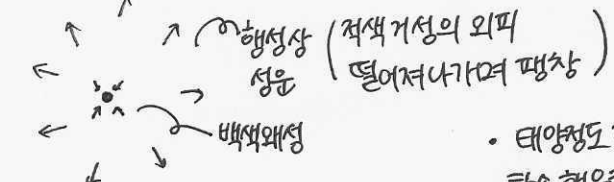 행성상 (적색거성의 외피
성운 떨어져나가며 팽창)
백색왜성
• 태양정도